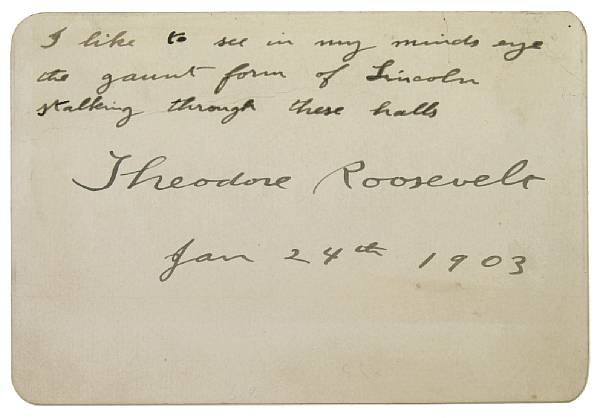 I like to see in my minds eye
the gaunt form of Lincoln
stalking through these halls
Theodore Roosevelt
Jan 24th 1903